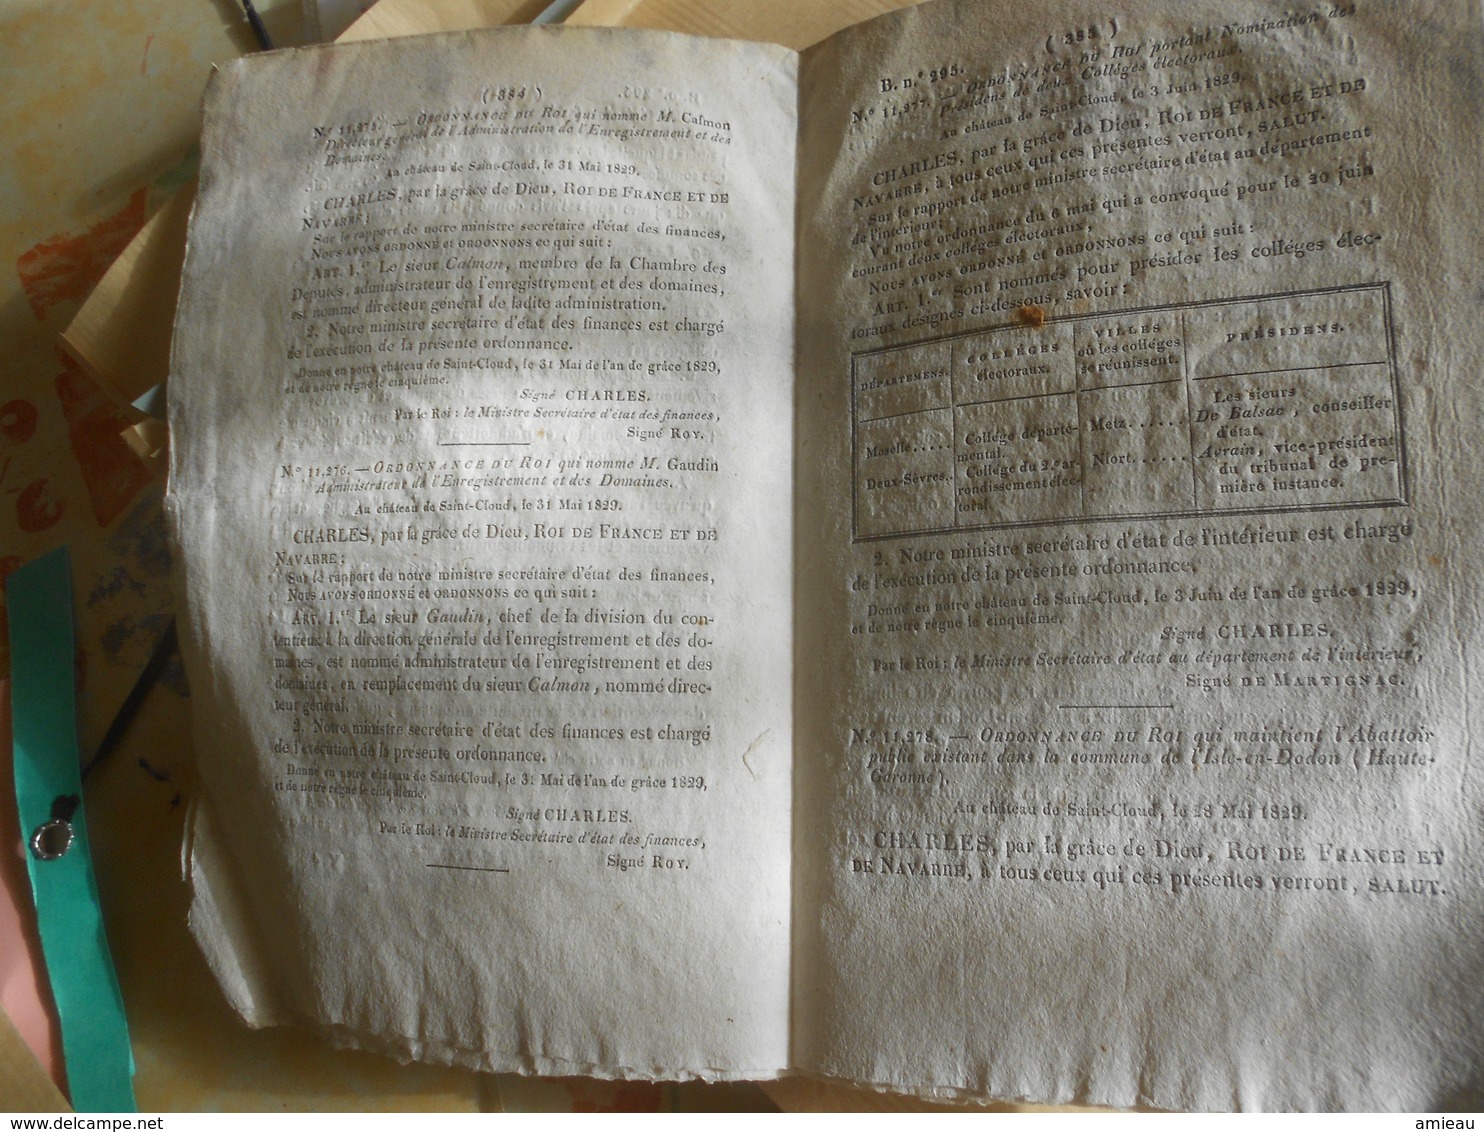 ( 384 )
N.° 11,275. — ORDONNANCE DU ROI qui nomme M. Calmon
Directeur général de l'Administration de l'Enregistrement et des
Domaines.
Au château de Saint-Cloud, le 31 Mai 1829.
CHARLES, par la grâce de Dieu, ROI DE FRANCE ET DE
NAVARRE;
Sur le rapport de notre ministre secrétaire d'état des finances,
NOUS AVONS ORDONNÉ et ORDONNONS ce qui suit :
ART. 1.er Le sieur Calmon, membre de la Chambre des
Députés, administrateur de l'enregistrement et des domaines,
est nommé directeur général de ladite administration.
2. Notre ministre secrétaire d'état des finances est chargé
de l'exécution de la présente ordonnance.
Donné en notre château de Saint-Cloud, le 31 Mai de l'an de grâce 1829,
et de notre règne le cinquième.
Signé CHARLES.
Par le Roi : le Ministre Secrétaire d'état des finances,
Signé ROY.
N.° 11,276. — ORDONNANCE DU ROI qui nomme M. Gaudin
Administrateur de l'Enregistrement et des Domaines.
Au château de Saint-Cloud, le 31 Mai 1829.
CHARLES, par la grâce de Dieu, ROI DE FRANCE ET DE
NAVARRE;
Sur le rapport de notre ministre secrétaire d'état des finances,
NOUS AVONS ORDONNÉ et ORDONNONS ce qui suit :
ART. 1.er Le sieur Gaudin, chef de la division du con-
tentieux à la direction générale de l'enregistrement et des do-
maines, est nommé administrateur de l'enregistrement et des
domaines, en remplacement du sieur Calmon, nommé direc-
teur général.
2. Notre ministre secrétaire d'état des finances est chargé
de l'exécution de la présente ordonnance.
Donné en notre château de Saint-Cloud, le 31 Mai de l'an de grâce 1829,
et de notre règne le cinquième.
Signé CHARLES.
Par le Roi : le Ministre Secrétaire d'état des finances,
Signé ROY.
B. n.° 295. ( 385 )
N.° 11,277. — ORDONNANCE DU ROI portant Nomination des
Présidens de deux Colléges électoraux.
Au château de Saint-Cloud, le 3 Juin 1829.
CHARLES, par la grâce de Dieu, ROI DE FRANCE ET DE
NAVARRE, à tous ceux qui ces présentes verront, SALUT.
Sur le rapport de notre ministre secrétaire d'état au département
de l'intérieur;
Vu notre ordonnance du 6 mai qui a convoqué pour le 20 juin
courant deux colléges électoraux,
NOUS AVONS ORDONNÉ et ORDONNONS ce qui suit :
ART. 1.er Sont nommés pour présider les colléges élec-
toraux désignés ci-dessous, savoir :
DÉPARTEMENS. COLLÉGES électoraux. VILLES où les colléges se réunissent. PRÉSIDENS.
Moselle..... Collége départe-mental. Metz...... Les sieurs De Balsac, conseiller d'état.
Deux-Sèvres.. Collége du 2.e ar-rondissement élec-toral. Niort..... Avrain, vice-président du tribunal de pre-mière instance.
2. Notre ministre secrétaire d'état de l'intérieur est chargé
de l'exécution de la présente ordonnance.
Donné en notre château de Saint-Cloud, le 3 Juin de l'an de grâce 1829,
et de notre règne le cinquième.
Signé CHARLES.
Par le Roi : le Ministre Secrétaire d'état au département de l'intérieur,
Signé DE MARTIGNAC.
N.° 11,278. — ORDONNANCE DU ROI qui maintient l'Abattoir
public existant dans la commune de l'Isle-en-Dodon (Haute-
Garonne).
Au château de Saint-Cloud, le 28 Mai 1829.
CHARLES, par la grâce de Dieu, ROI DE FRANCE ET
DE NAVARRE, à tous ceux qui ces présentes verront, SALUT.
delcampe.net
amieau